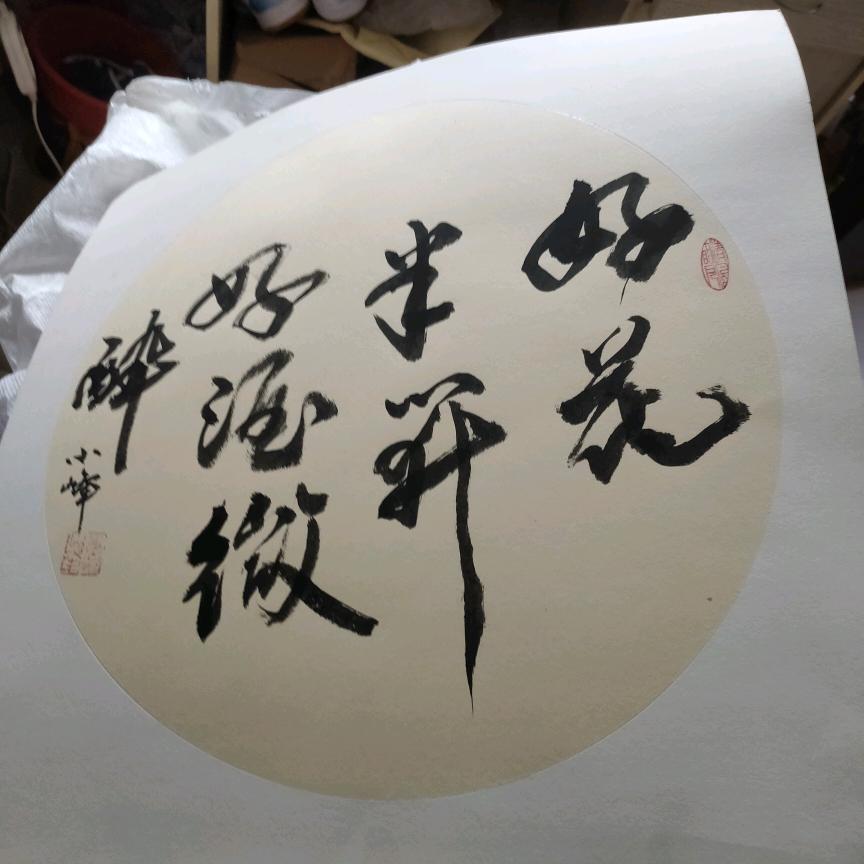 好花
半開
好酒微
醉
小峰